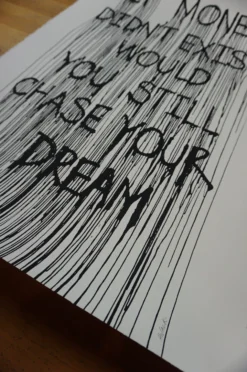 MONE
DIDNT EXIS
WOULD
YOU STILL
CHASE YOUR
DREAM